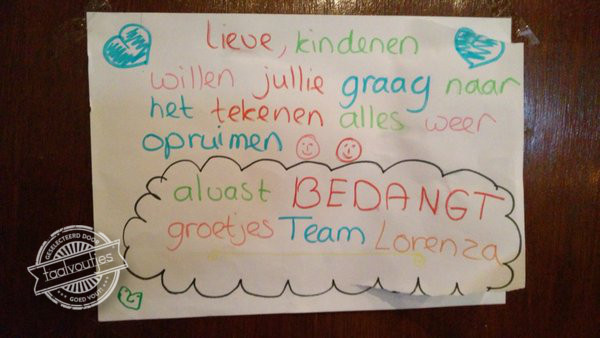 Lieve, kindenen
willen jullie graag naar
het tekenen alles weer
opruimen
alvast BEDANGT
groetjes Team Lorenza
GESELECTEERD DOOR
taalvoutjes
GOED VOUT!